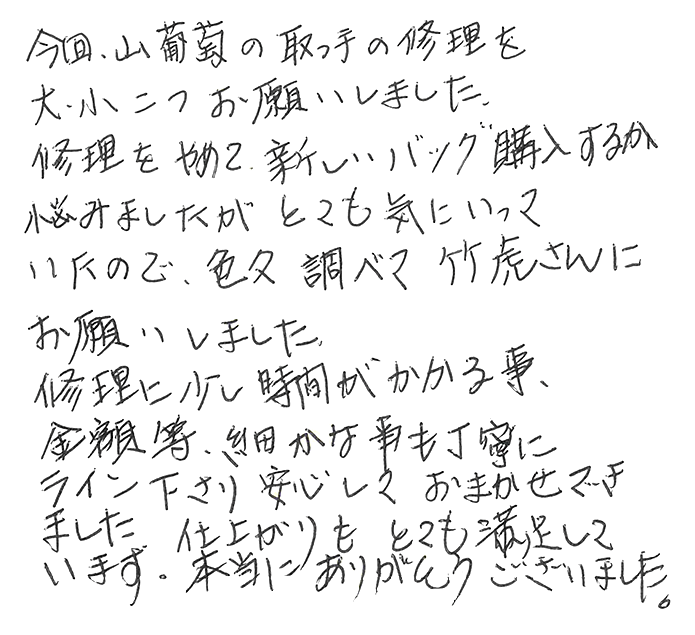 今回、山葡萄の取っ手の修理を
大・小二つ お願いしました。
修理をやめて、新しいバッグ購入するか
悩みましたが とても気にいって
いたので、色々 調べて 竹虎さんに
お願いしました。
修理に少し時間がかかる事、
金額等、細かな事も丁寧に
ライン下さり 安心して おまかせでき
ました 仕上がりも とても満足して
います。本当にありがとうございました。